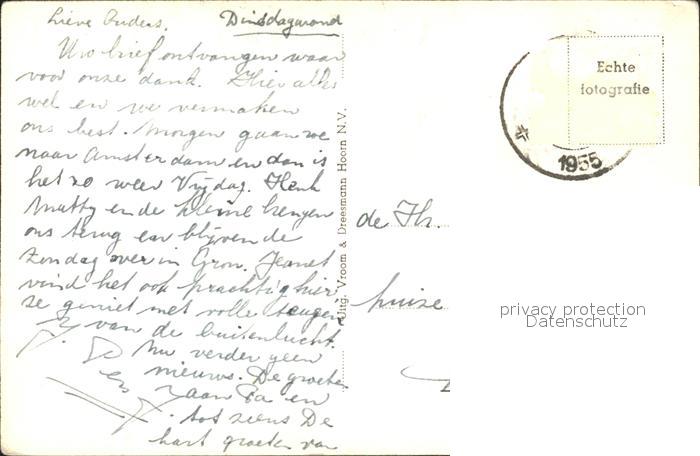 Lieve Ouders. Dinsdagavond
Uw brief ontvangen waar
voor onze dank. Hier alles
wel en we vermaken
ons best. Morgen gaan we
naar Amsterdam en dan is
het zo weer Vrijdag. Henk
Matty en de kleine brengen
ons terug en blijven de
Zondag over in Gron. Jeanet
vind het ook prachtig hier
ze geniet met volle teugen
van de buitenlucht.
Nu verder geen
nieuws. De groeten
aan Pa en
tot ziens De
hart groeten van
Uitg. Vroom & Dreesmann Hoorn N.V.
Echte
fotografie
1955
de Fh.
huize
privacy protection
Datenschutz